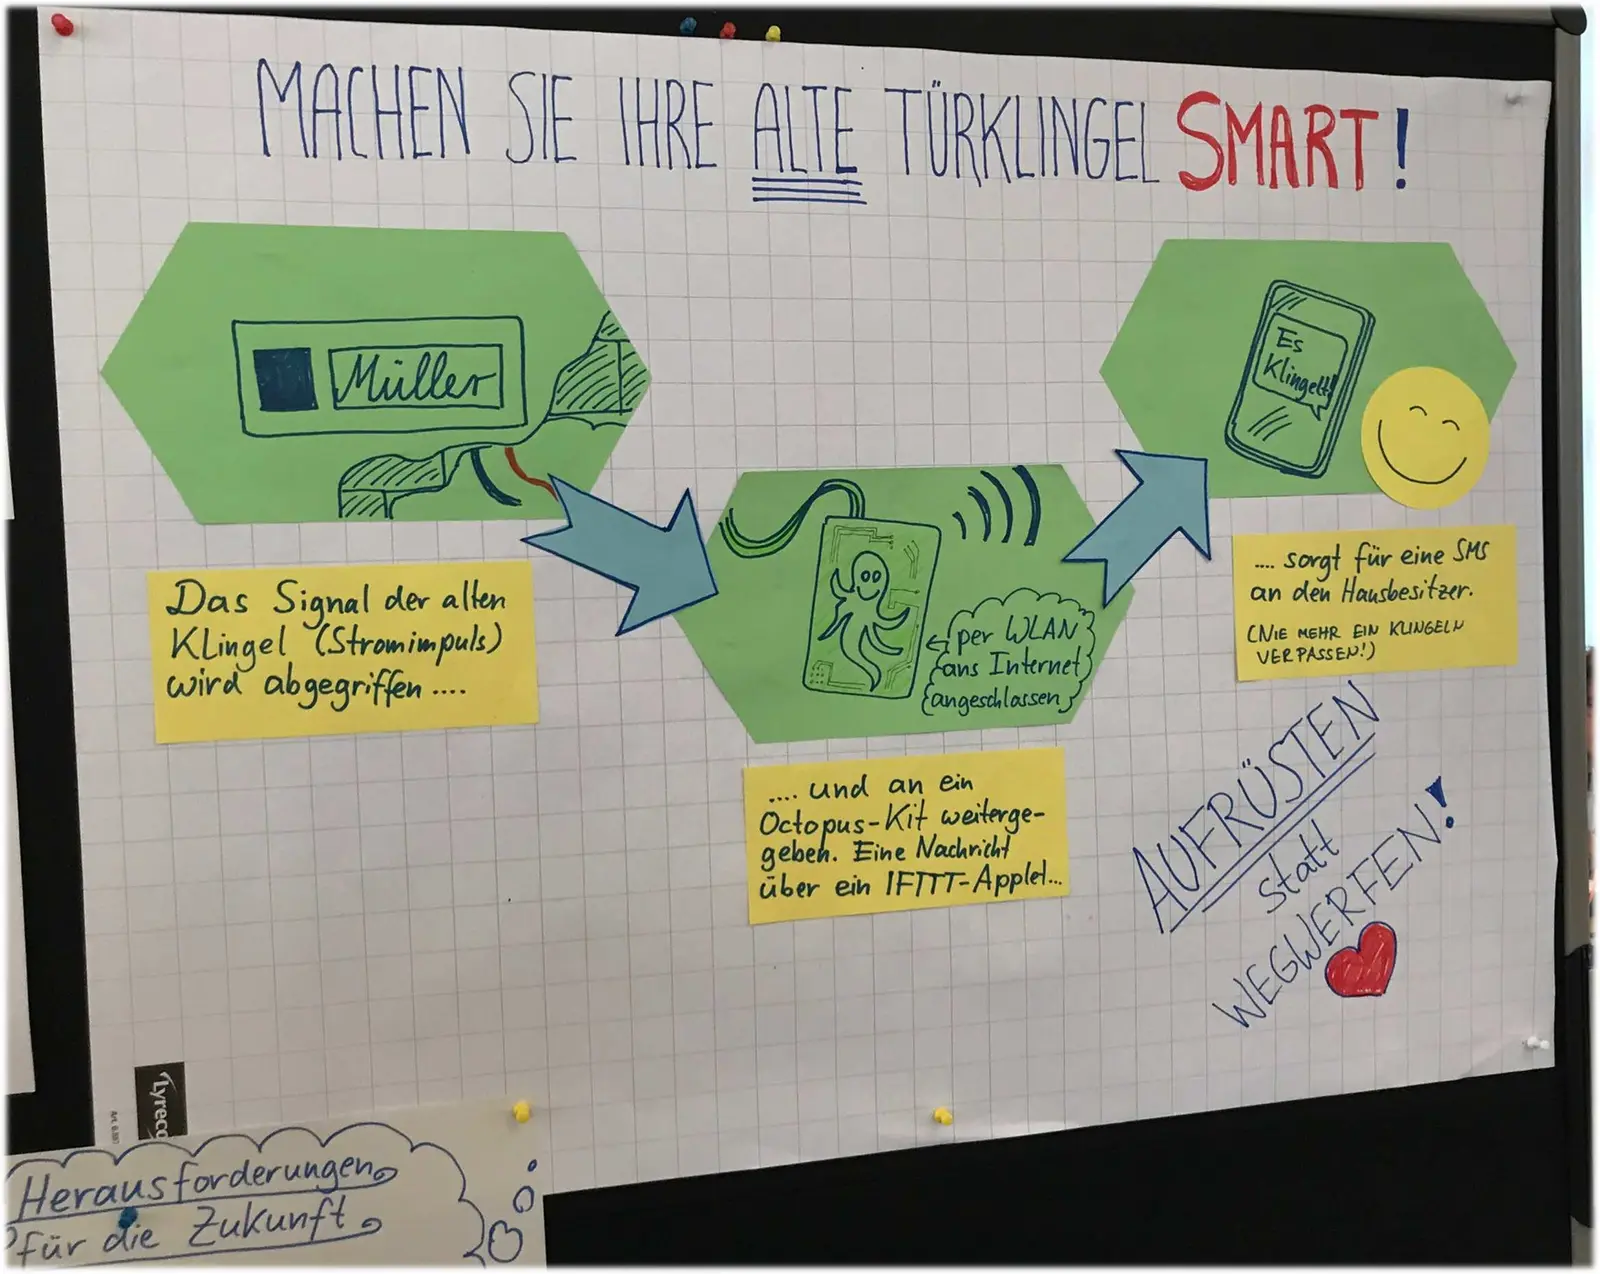 MACHEN SIE IHRE ALTE TÜRKLINGEL SMART!
Müller
Das Signal der alten
Klingel (Stromimpuls)
wird abgegriffen ....
per WLAN
ans Internet
angeschlossen
.... und an ein
Octopus-Kit weiterge-
geben. Eine Nachricht
über ein IFTTT-Applet...
Es
Klingelt!
.... sorgt für eine SMS
an den Hausbesitzer.
(NIE MEHR EIN KLINGELN
VERPASSEN!)
AUFRÜSTEN
statt
WEGWERFEN!
Lyreco
Herausforderungen
für die Zukunft